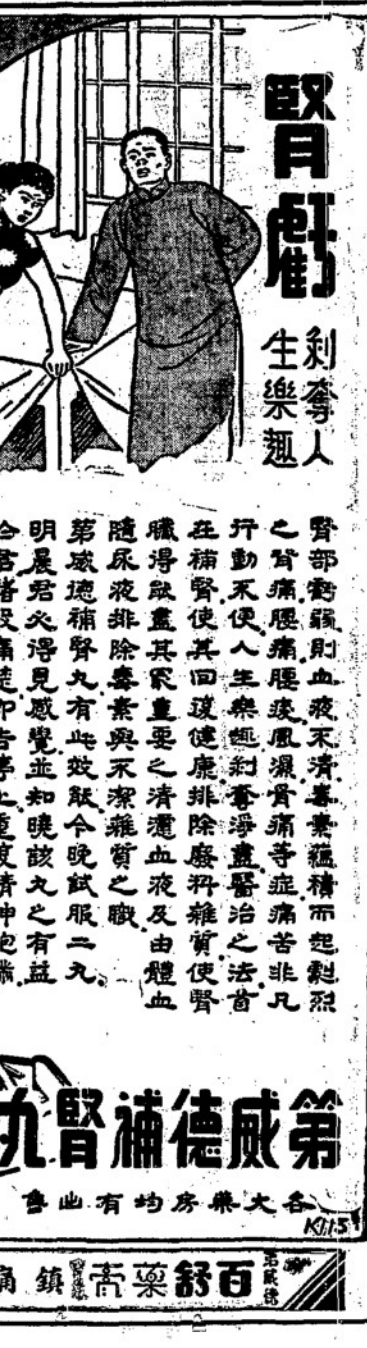 腎虧
剝奪人
生樂趣
腎部虧弱則血液不清毒素蘊積而起劇烈
之背痛腰痛腰痠風濕骨痛等症痛苦非凡
行動不便人生樂趣剝奪淨盡醫治之法首
在補腎使其回復健康排除廢料雜質使腎
臟得能盡其最重要之清瀘血液及由體血
隨尿液排除毒素與不潔雜質之職
第威德補腎丸有此效能今晚試服二丸
明晨君必得見感覺並知曉該丸之有益
第威德補腎丸
各大藥房均有出售
K115
第威德
百舒藥膏
鎮痛